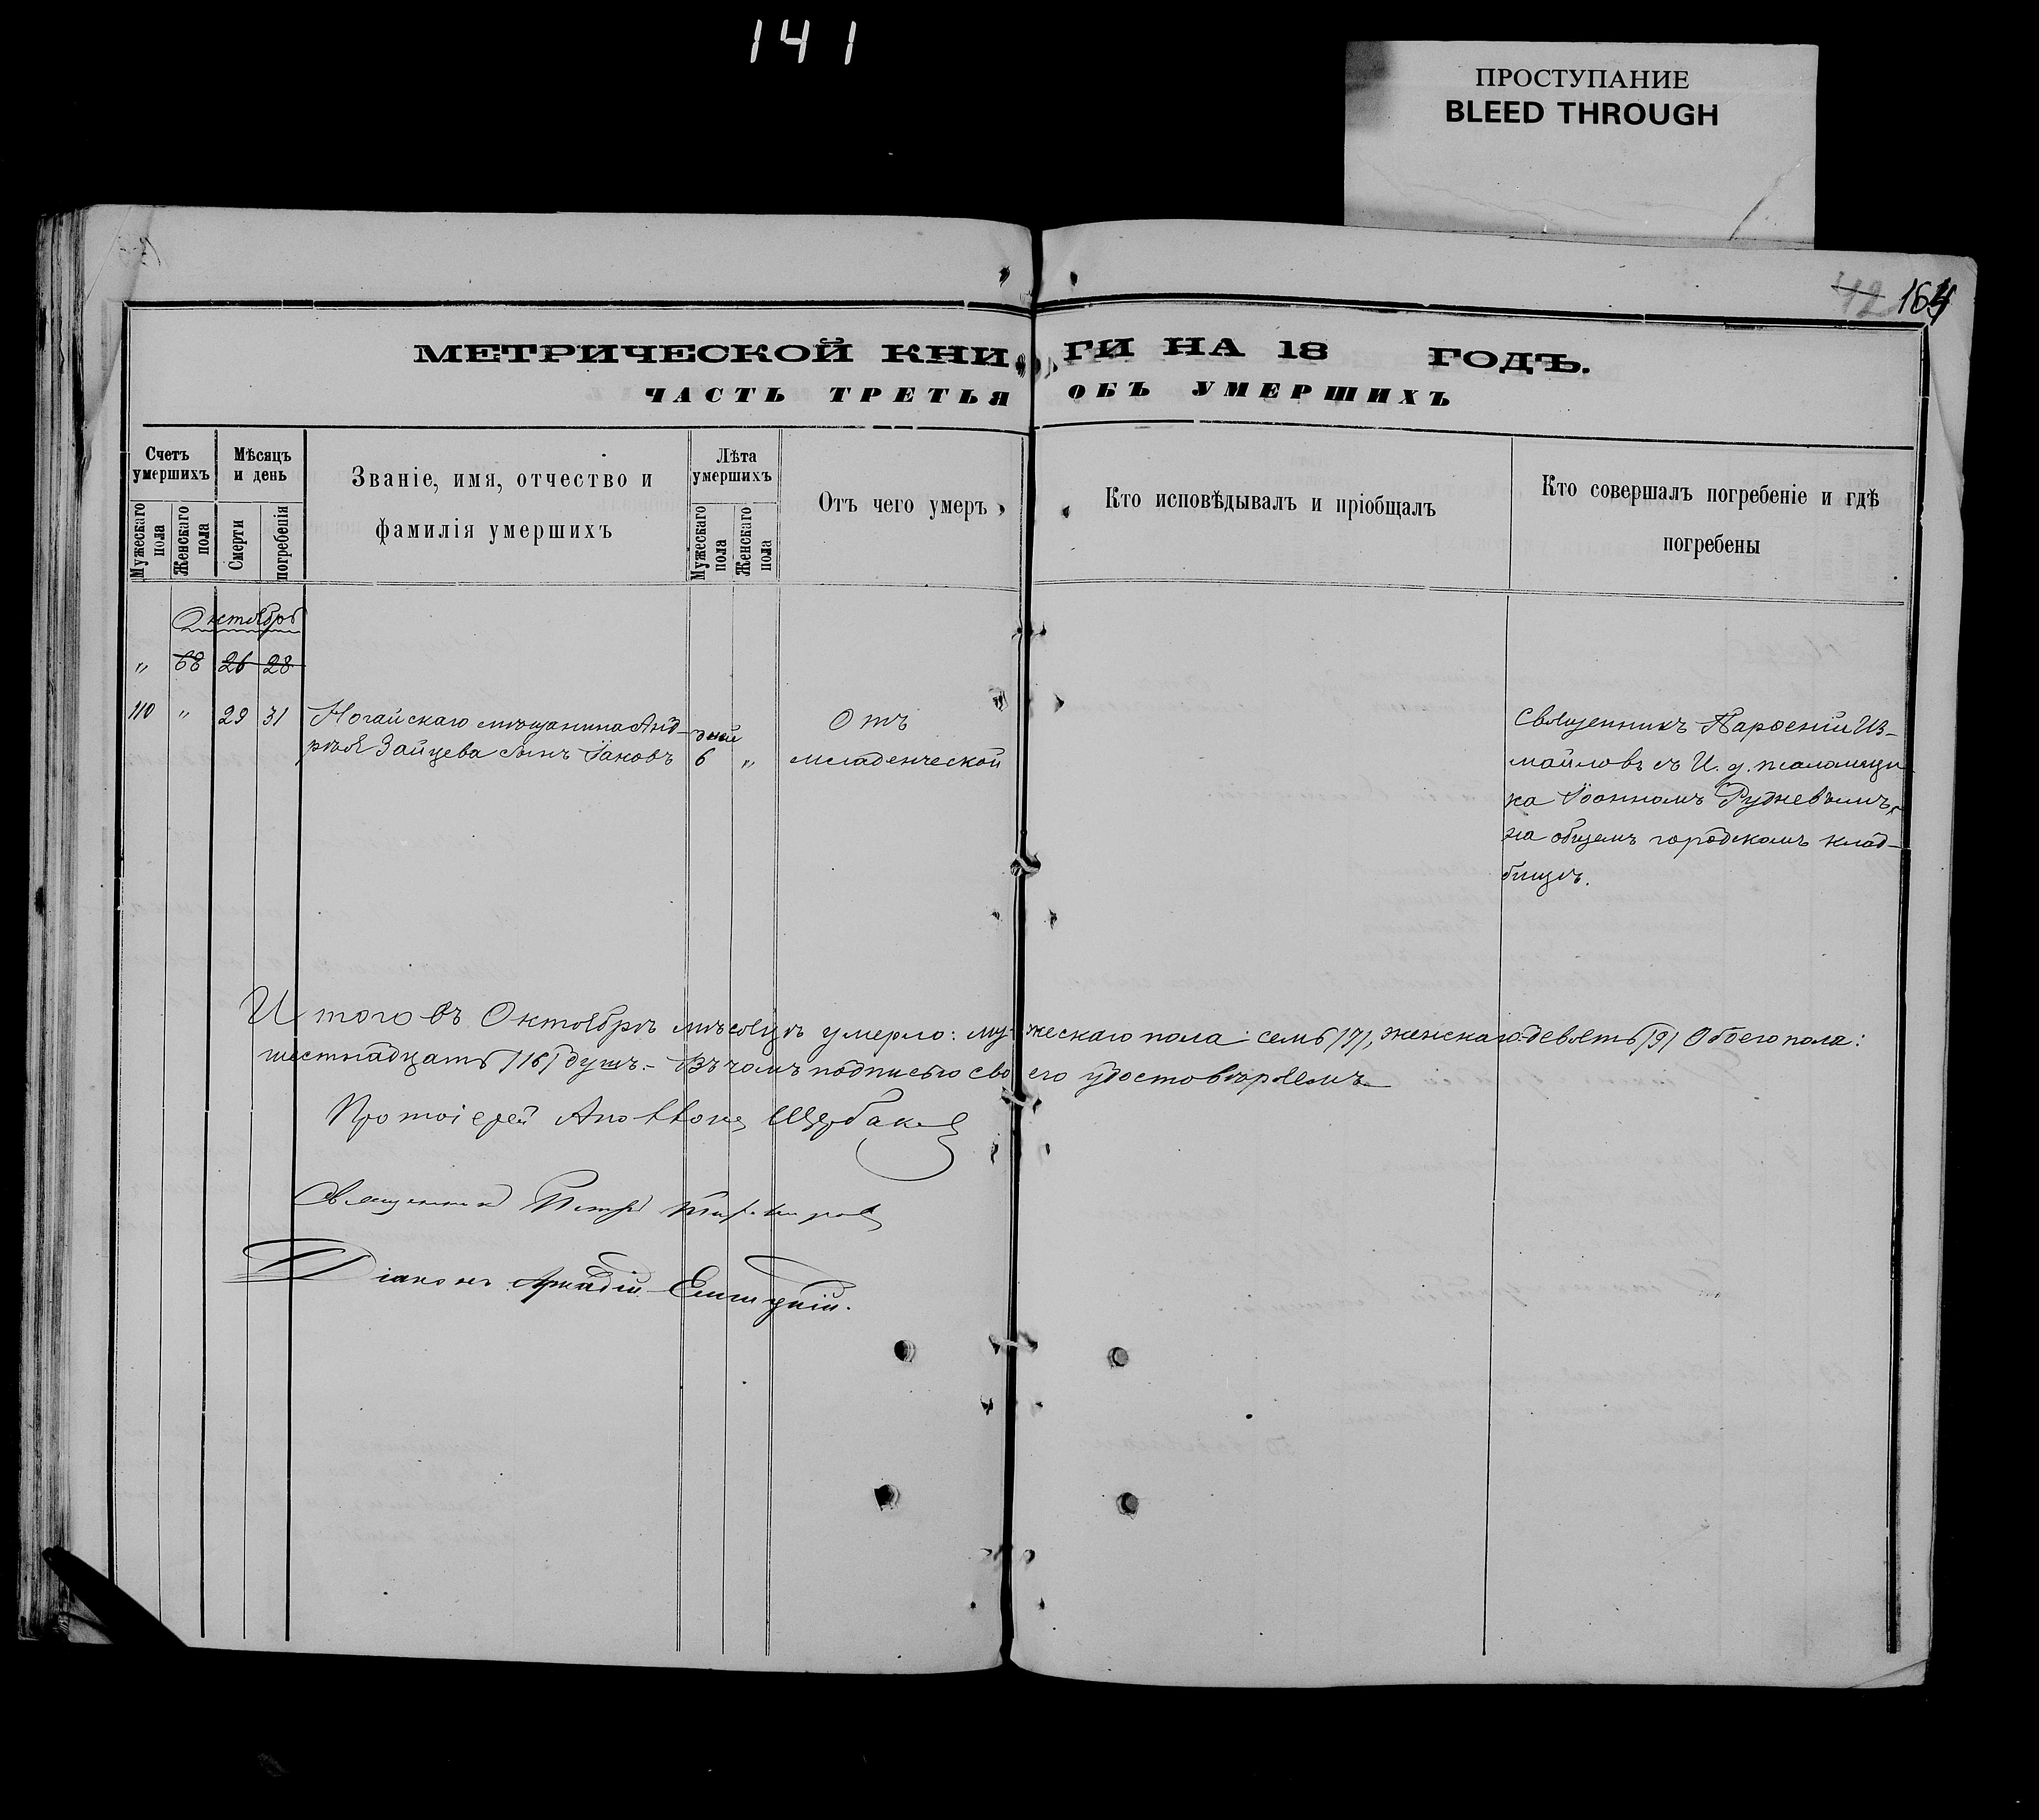 141
ПРОСТУПАНИЕ
BLEED THROUGH
42 164
МЕТРИЧЕСКОЙ КНИГИ НА 18 ГОДЪ.
ЧАСТЬ ТРЕТЬЯ ОБЪ УМЕРШИХЪ
Счетъ умершихъ
Мужескаго пола
Женскаго пола
Мѣсяцъ и день
Смерти
погребенія
Званіе, имя, отчество и
фамилія умершихъ
Лѣта умершихъ
Мужескаго пола
Женскаго пола
Отъ чего умеръ
Кто исповѣдывалъ и пріобщалъ
Кто совершалъ погребеніе и гдѣ
погребены
Октябрь
„ 68 26 28
110 „ 29 31
Ногайскаго мѣщанина Анд-
рѣя Зайцева сынъ Іаковъ
дней
6 „
Отъ
младенческой
Священникъ Парѳеній Из-
майловъ съ И. д. псаломщи
ка Іоанномъ Рудневымъ,
на общемъ городскомъ клад-
бищѣ.
Итого въ Октябрѣ мѣсяцѣ умерло: мужескаго пола: семь /7/, женскаго: девять /9/ Обоего пола:
шестнадцать /16/ душъ. – Въ чомъ подписью своего удостовѣряемъ
Протоіерей Щербаков
Священникъ Петръ
Діаконъ Аркадій